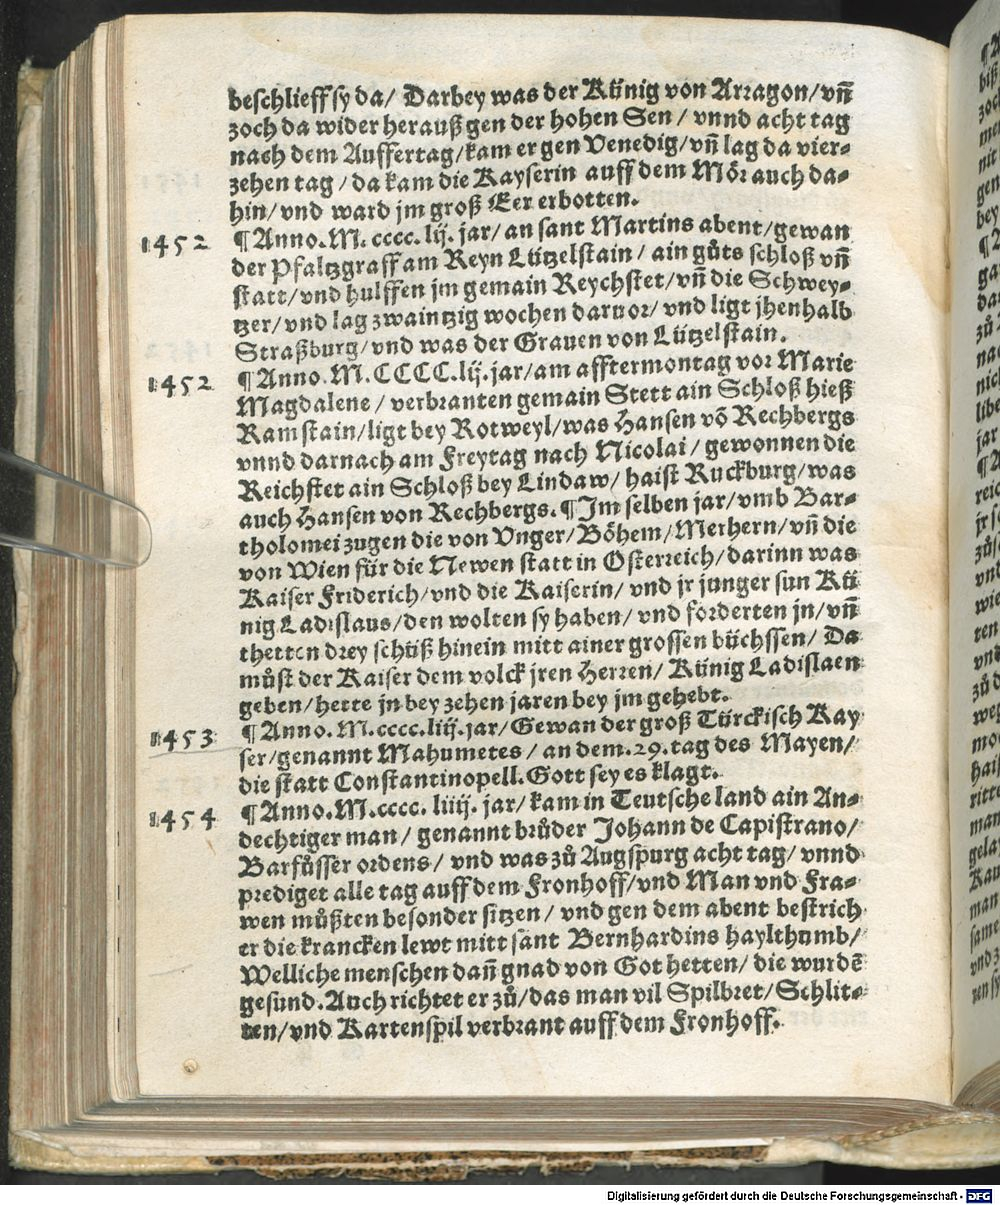 beschlieff sy da/ Darbey was der Künig von Arragon/ vñ
zoch da wider herauß gen der hohen Sen/ vnnd acht tag
nach dem Auffertag/ kam er gen Venedig/ vñ lag da vier-
zehen tag/ da kam die Kayserin auff dem Mör auch da-
hin/ vnd ward jm groß Eer erbotten.
1452 ¶ Anno. M. cccc. lij. jar/ an sant Martins abent/ gewan
der Pfaltzgraff am Reyn Lützelstain/ ain gůts schloß vñ
statt/ vnd hulffen jm gemain Reychstet/ vñ die Schwey-
tzer/ vnd lag zwaintzig wochen daruor/ vnd ligt jhenhalb
Straßburg/ vnd was der Grauen von Lützelstain.
1452 ¶ Anno. M. CCCC. lij. jar/ am afftermontag vor Marie
Magdalene/ verbranten gemain Stett ain Schloß hieß
Ramstain/ ligt bey Rotweyl/ was Hansen võ Rechbergs
vnnd darnach am Freytag nach Nicolai/ gewonnen die
Reichstet ain Schloß bey Lindaw/ haist Ruckburg/ was
auch Hansen von Rechbergs. ¶ Jm selben jar/ vmb Bar-
tholomei zugen die von Vnger/ Böhem/ Merhern/ vñ die
von Wien für die Newen statt in Osterreich/ darinn was
Kaiser Friderich/ vnd die Kaiserin/ vnd jr junger sun Kü
nig Ladislaus/ den wolten sy haben/ vnd forderten jn/ vñ
thetten drey schüß hinein mitt ainer grossen büchssen/ Da
můst der Kaiser dem volck jren Herren/ Künig Ladislaen
geben/ hette jn bey zehen jaren bey jm gehebt.
1453 ¶ Anno. M. cccc. liij. jar/ Gewan der groß Türckisch Kay
ser/ genannt Mahumetes/ an dem .29. tag des Mayen/
die statt Constantinopell. Gott sey es klagt.
1454 ¶ Anno. M. cccc. liiij. jar/ kam in Teutsche land ain An-
dechtiger man/ genannt brůder Johann de Capistrano/
Barfůsser ordens/ vnd was zů Augspurg acht tag/ vnnd
prediget alle tag auff dem Fronhoff/ vnd Man vnd Fra-
wen můßten besonder sitzen/ vnd gen dem abent bestrich
er die krancken lewt mitt sant Bernhardins haylthumb/
Welliche menschen dañ gnad von Got hetten/ die wurdẽ
gesund. Auch richtet er zů/ das man vil Spilbret/ Schlit-
ten/ vnd Kartenspil verbrant auff dem Fronhoff.
Digitalisierung gefördert durch die Deutsche Forschungsgemeinschaft - DFG